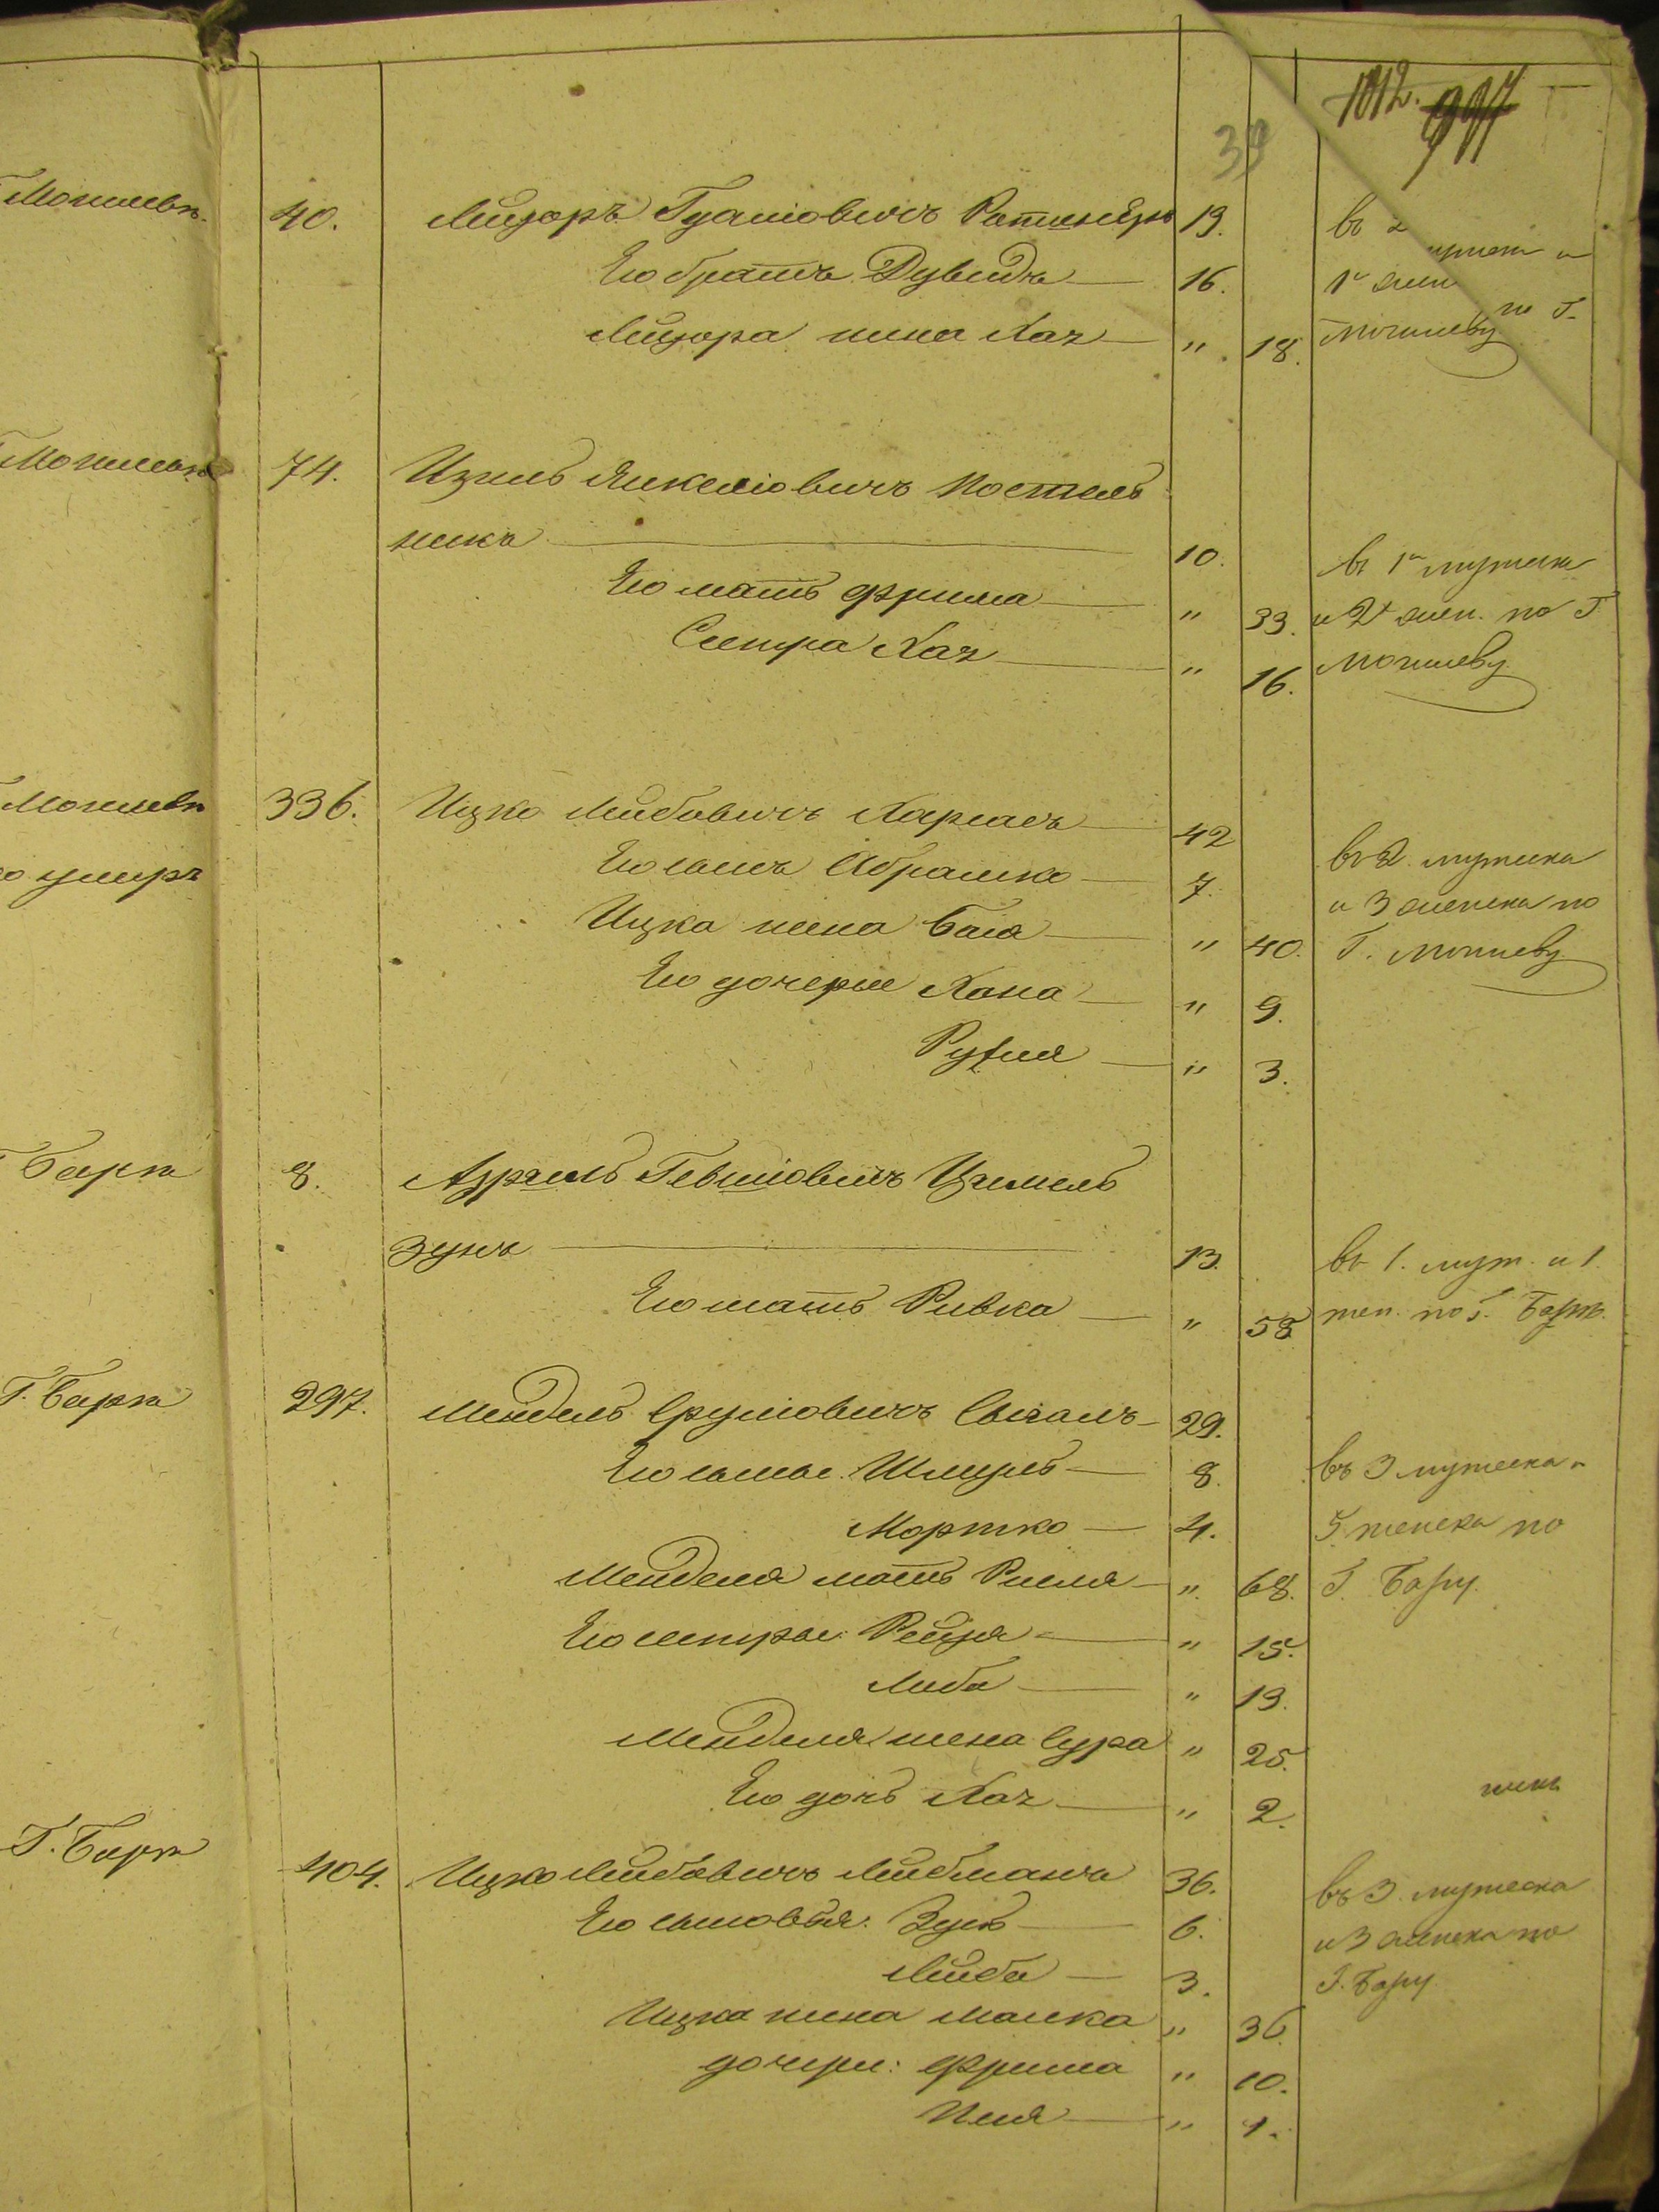 1012. 997
39
Могилевъ. 40. Лейзоръ 19. въ 2
Его братъ Дувидъ — 16. 1й жен
Лейзора жена Хая — " 18. Могилеву
по Г.
Могилевъ 74. Изиль Янкеліовичъ Постель
никъ — 10. въ 1й мужеска
Его мать Фрима — " 33. и 2х жен. по Г.
Сестра Хая — " 16. Могилеву
Могилевъ 336. Ицко Лейбовичъ — 42 въ 2. мужеска
умеръ Его сынъ Абрамко — 7. и 3 женска по
Ицка жена Бася — " 40. Г. Могилеву
Его дочери Хана — " 9.
Рухля — " 3.
Баръ 8. Азріель Гевшіовичъ Цимель
зунъ — 13. въ 1. муж. и 1.
Его мать Ривка — " 58 жен. по Г. Бару.
Г. Баръ 297. Мендель Срулiовичъ Сигалъ — 29.
Его сыны: Шмуль — 8. въ 3 мужеска и
Мортко — 4. 5 женска по
Менделя мать — " 68. Г. Бару.
Его сестры: Рейзя — " 15.
Либа — " 13.
Менделя жена Сура " 25.
Его дочь Хая — " 2.
Г. Баръ 404. Ицко Лейбовичъ Лейбманъ 36. въ 3. мужеска
Его сыновья: Зусь — 6. и 3 женска по
Лейба — 3. Г. Бару
Ицка жена Малка " 36
дочери: Фрима " 10.
" 1.